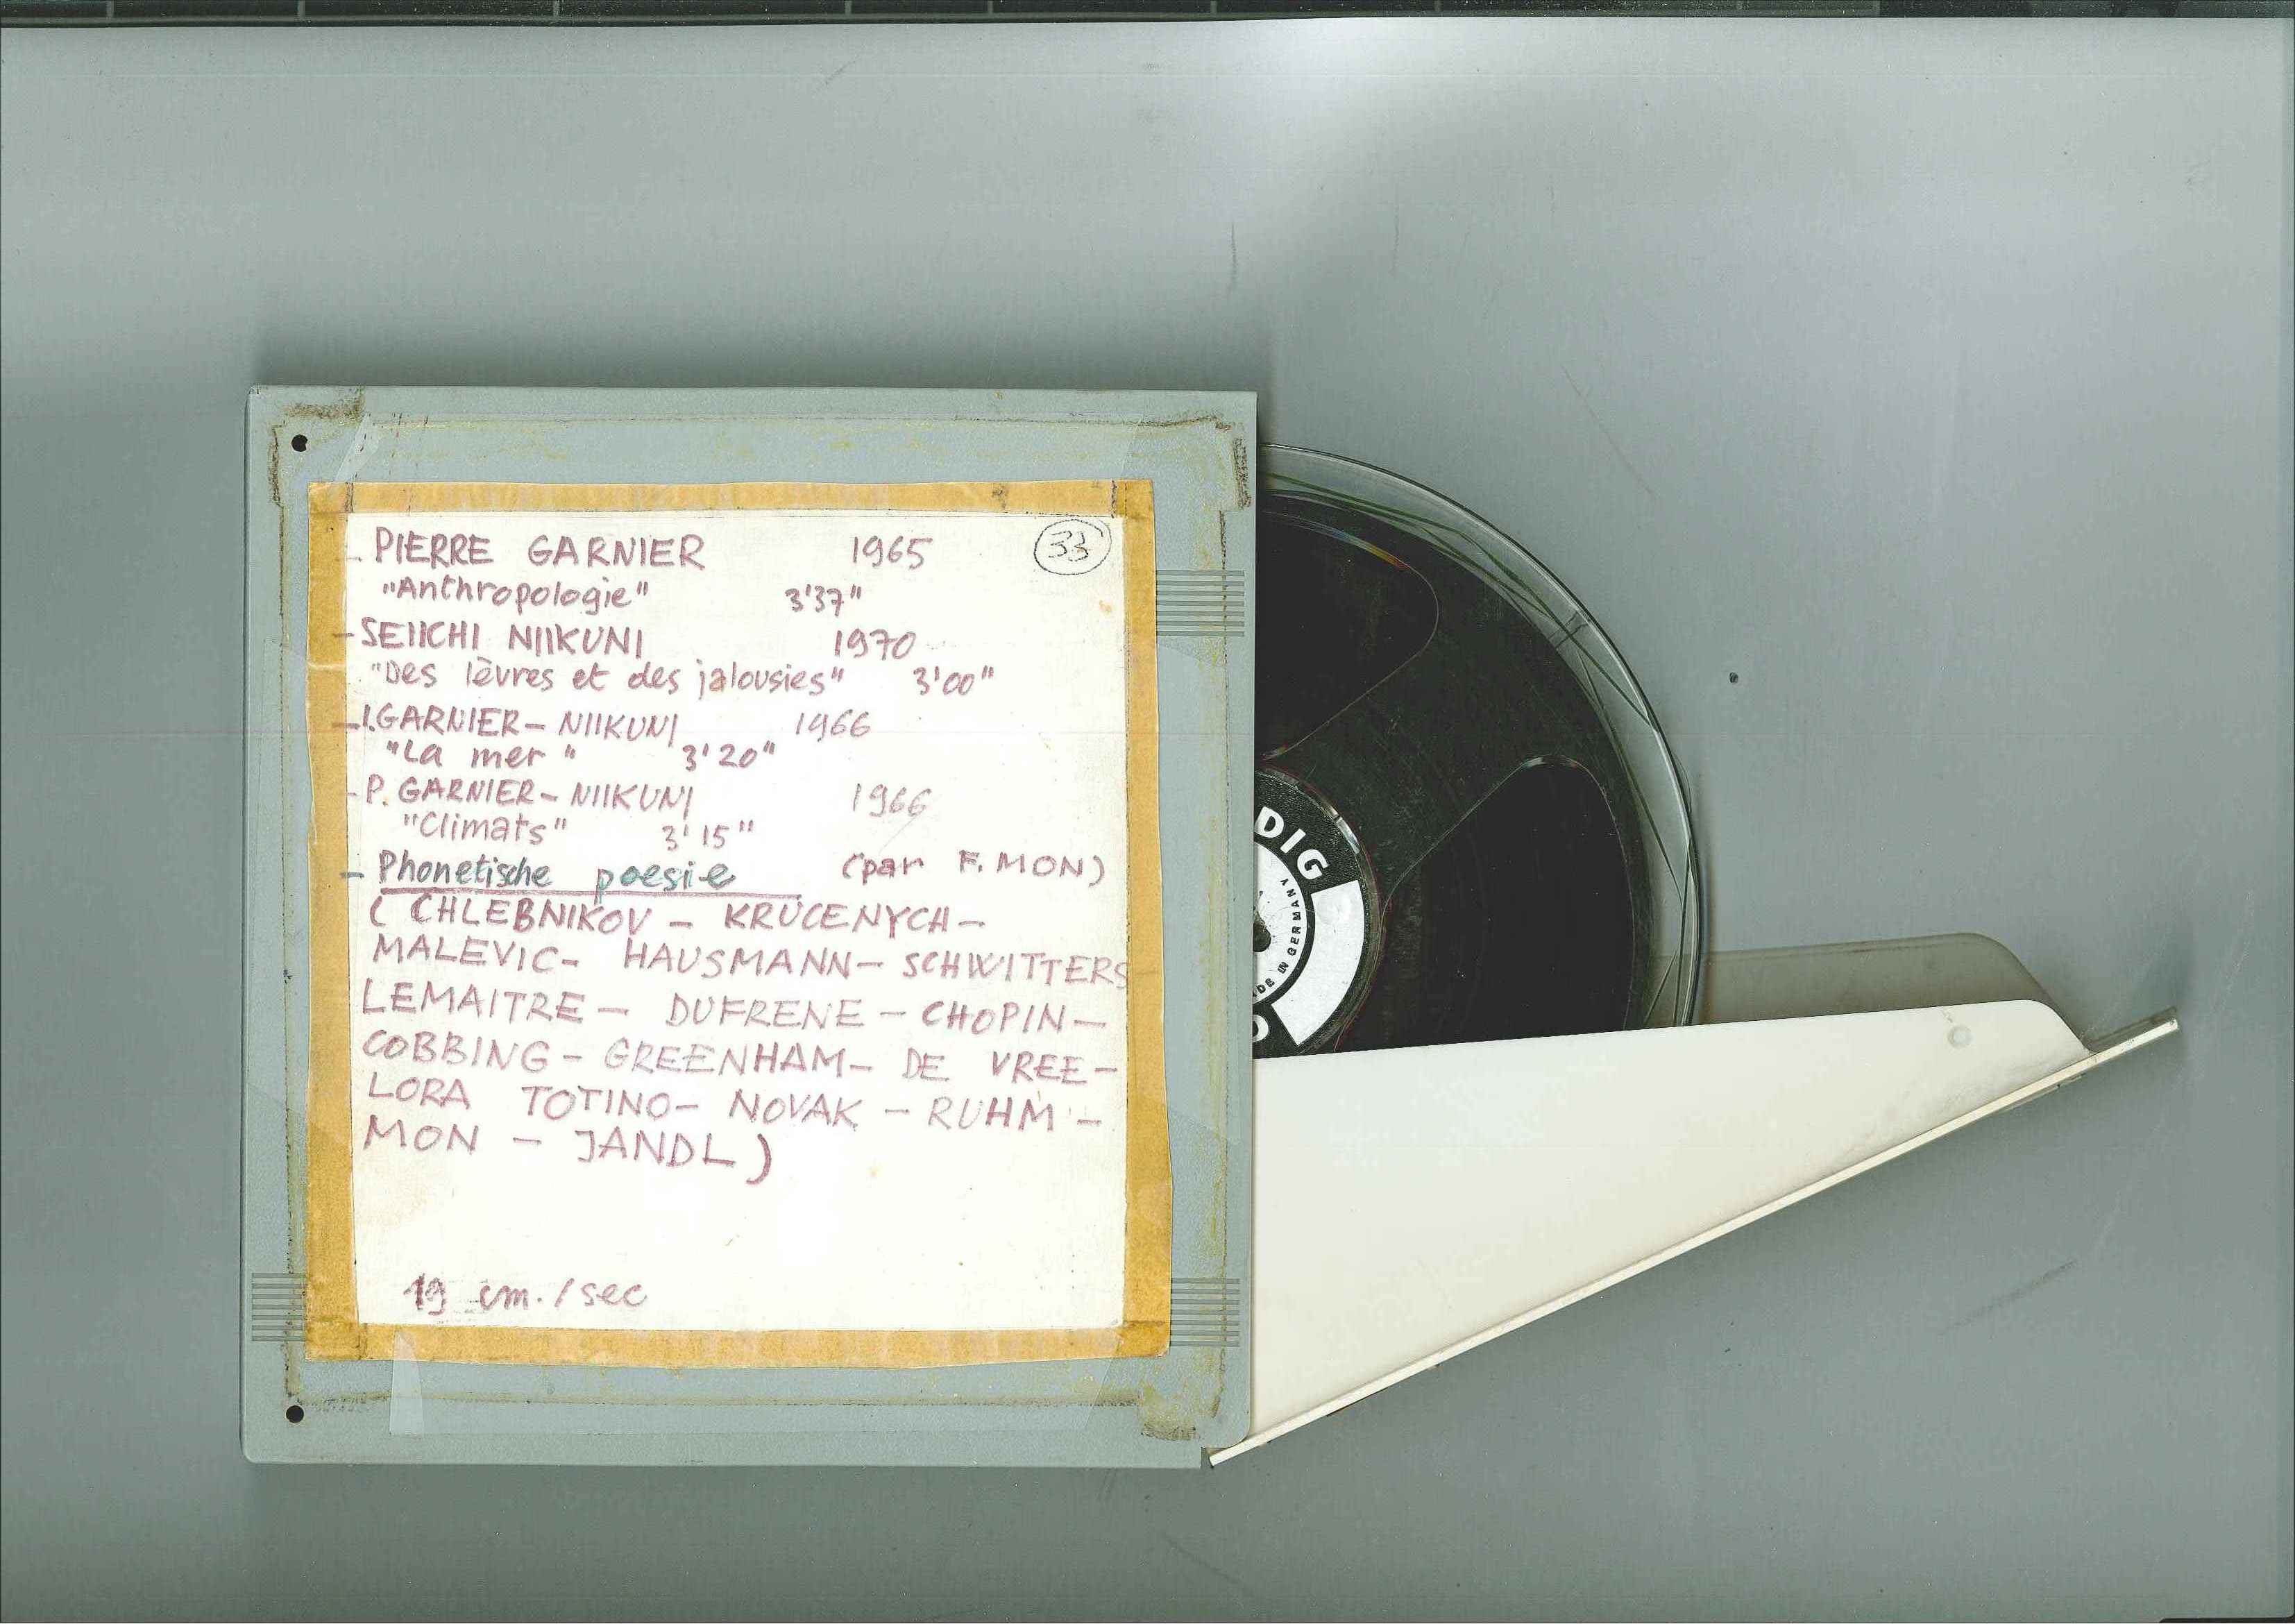 - PIERRE GARNIER 1965 33
"Anthropologie" 3'37"
- SEIICHI NIIKUNI 1970
"Des lèvres et des jalousies" 3'00"
- I.GARNIER - NIIKUNI 1966
"La mer" 3'20"
- P. GARNIER - NIIKUNI 1966
"Climats" 3'15"
- Phonetische poesie (par F. MON)
( CHLEBNIKOV - KRUCENYCH -
MALEVIC - HAUSMANN - SCHWITTERS
LEMAITRE - DUFRENE - CHOPIN -
COBBING - GREENHAM - DE VREE -
LORA TOTINO - NOVAK - RUHM -
MON - JANDL )
19 cm./sec
DIG
IN GERMANY